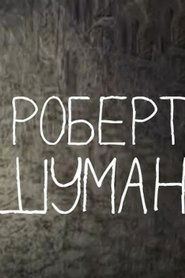 РОБЕРТ
ШУМАН